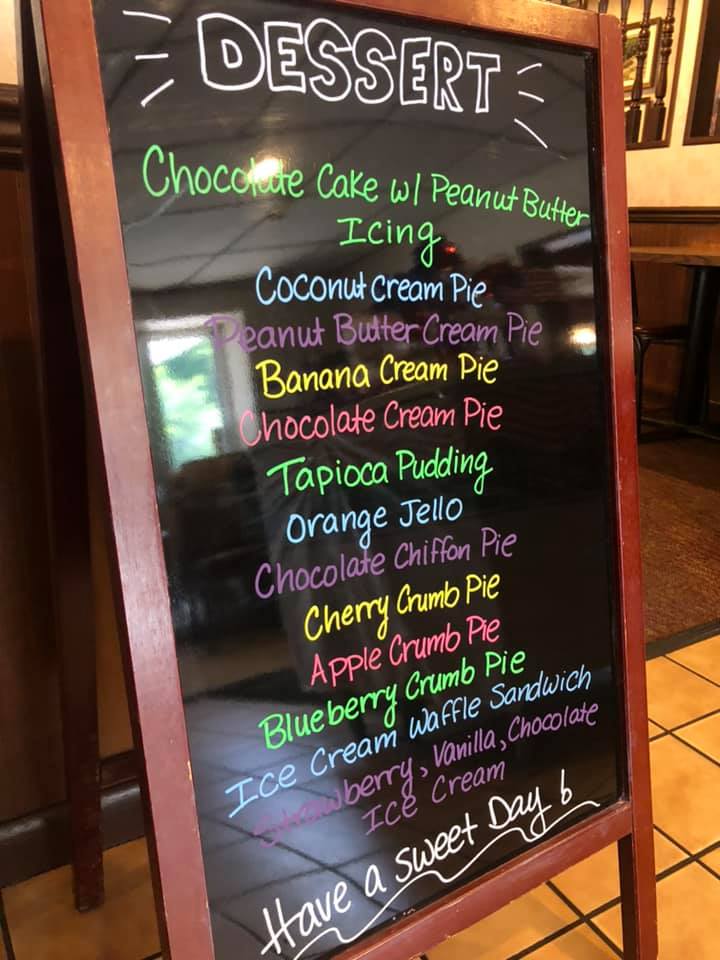 DESSERT
Chocolate Cake w/ Peanut Butter
Icing
Coconut Cream Pie
Peanut Butter Cream Pie
Banana Cream Pie
Chocolate Cream Pie
Tapioca Pudding
Orange Jello
Chocolate Chiffon Pie
Cherry Crumb Pie
Apple Crumb Pie
Blueberry Crumb Pie
Ice Cream Waffle Sandwich
Strawberry, Vanilla, Chocolate
Ice Cream
Have a sweet Day